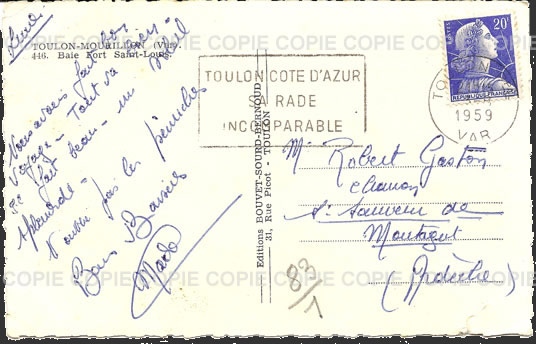 Lundi
TOULON-MOURILLON (Var)
446. Baie Fort Saint-Louis
COPIE COPIE COPIE COPIE COPIE COPIE COPIE
Nous avons fait bon
voyage - Tout va bien -
il fait beau - un soleil
splendide -
pas les perruches
Bons Baisers
Mado
TOULON COTE D'AZUR
SA RADE
INCOMPARABLE
20F
REPUBLIQUE FRANÇAISE
TOULON
1959
VAR
Editions BOUVET-SOURD-BERNOUD
31, Rue Picot - TOULON
Mr Robert Gaston
St Sauveur de
Montagut
(Ardèche)
83/1
COPIE COPIE COPIE COPIE COPIE COPIE COPIE
COPIE COPIE COPIE COPIE COPIE COPIE COPIE